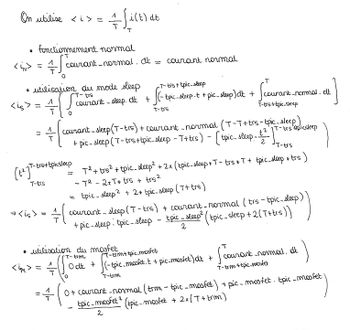 On utilise <i> = 1/T ∫_T i(t) dt
• fonctionnement normal
<in> = 1/T ∫_0^T courant_normal. dt = courant normal
• utilisation du mode sleep
<is> = 1/T [ ∫_0^{T-trs} courant_sleep. dt + ∫_{T-trs}^{T-trs+tpic_sleep} (-tpic_sleep.t + pic_sleep) dt + ∫_{T-trs+tpic_sleep}^T courant_normal. dt ]
= 1/T ( courant_sleep (T-trs) + courant_normal (T-T+trs-tpic_sleep)
+ pic_sleep (T-trs+tpic_sleep-T+trs) - [tpic_sleep. t²/2]_{T-trs}^{T-trs+tpic_sleep} )
[t²]_{T-trs}^{T-trs+tpic_sleep} = T² + trs² + tpic_sleep² + 2x (tpic_sleep x T - trs x T + tpic_sleep x trs)
- T² - 2xTxtrs + trs²
= tpic_sleep² + 2x tpic_sleep (T+trs)
⇒ <is> = 1/T ( courant_sleep (T-trs) + courant_normal (trs-tpic_sleep)
+ pic_sleep. tpic_sleep - tpic_sleep²/2 (tpic_sleep + 2(T+trs)) )
• utilisation du mosfet
<im> = 1/T ( ∫_0^{T-trm} 0 dt + ∫_{T-trm}^{T-trm+tpic_mosfet} (-tpic_mosfet. t + pic_mosfet) dt + ∫_{T-trm+tpic_mosfet}^T courant_normal. dt )
= 1/T ( 0 + courant_normal (trm - tpic_mosfet) + pic_mosfet. tpic_mosfet
- tpic_mosfet²/2 (tpic_mosfet + 2x(T+trm)) )